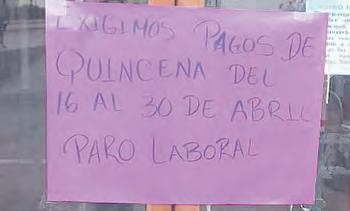 EXIGIMOS PAGOS DE
QUINCENA DEL
16 AL 30 DE ABRIL
PARO LABORAL